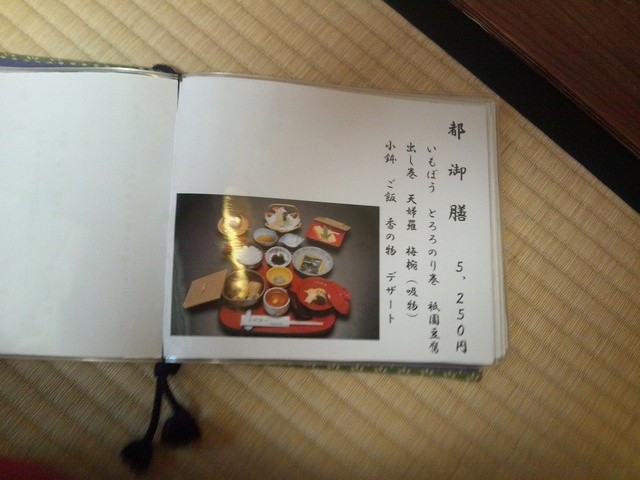 都御膳 5,250円
いもぼう とろろのり巻 祇園豆腐
出し巻 天婦羅 梅椀(吸物)
小鉢 ご飯 香の物 デザート